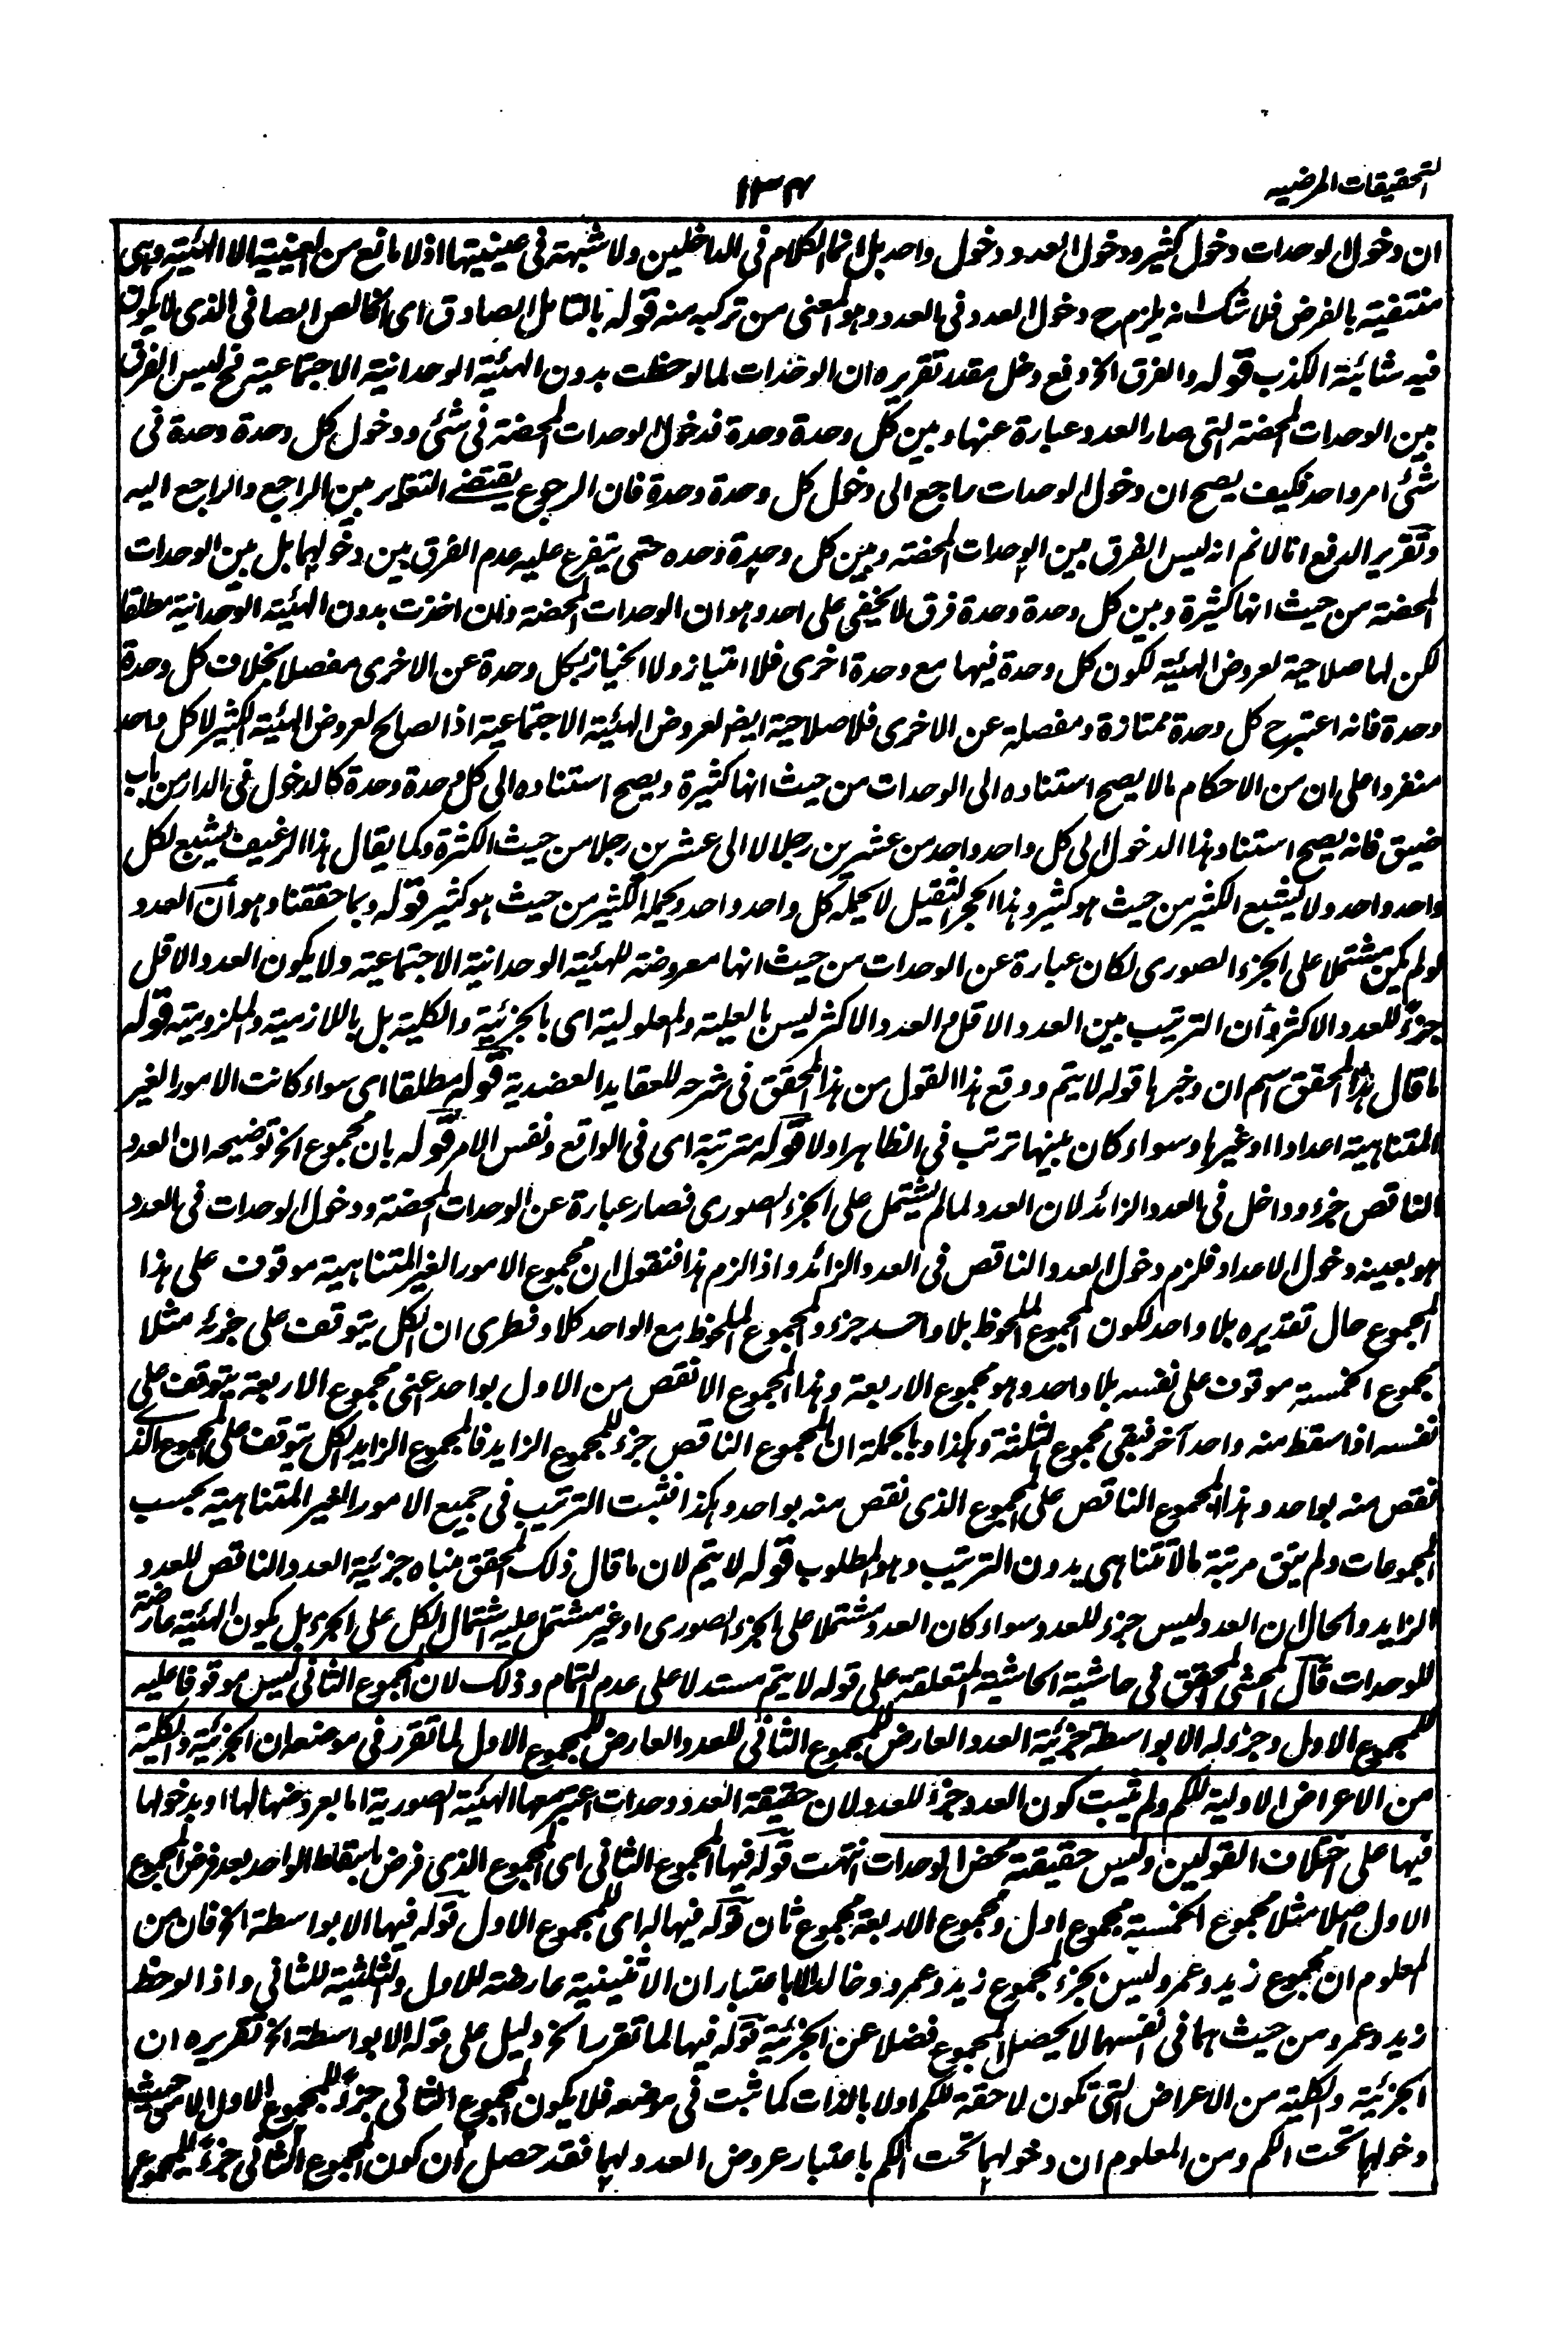 التحقيقات المرضيه
١٣٤
ان دخول الوحدات دخول كثير ودخول العدد دخول واحد بل انما الكلام فى الداخلين ولا شبهة فى عينيتها اذ لا مانع من العينية الا الهيئية وهى
منتفية بالفرض فلا شك انه يلزم ح دخول العدد فى العدد وهو المعنى من تركبه منه قوله بالتامل الصادق اى الخالص الصافى الذى لا يكون
فيه شائبة الكذب قوله والفرق الخ دفع دخل مقدر تقريره ان الوحدات لما لوحظت بدون الهيئية الوحدانية الاجتماعية فح ليس الفرق
بين الوحدات المحضة التى صار العدد عبارة عنها وبين كل وحدة وحدة فدخول الوحدات المحضة فى شئ ودخول كل وحدة وحدة فى
شئ امر واحد فكيف يصح ان دخول الوحدات راجع الى دخول كل وحدة وحدة فان الرجوع يقتضے التغاير بين الراجع والراجع اليه
وتقرير الدفع انا لا نم انه ليس الفرق بين الوحدات المحضة وبين كل وحدة وحده حتى يتفرع عليه عدم الفرق بين دخولهما بل بين الوحدات
المحضة من حيث انها كثيرة وبين كل وحدة وحدة فرق لا يخفى على احد وهو ان الوحدات المحضة وان اخذت بدون الهيئية الوحدانية مطلقا
لكن لها صلاحية لعروض الهيئية لكون كل وحدة فيها مع وحدة اخرى فلا امتياز ولا انحياز لكل وحدة عن الاخرى مفصلا بخلاف كل وحدة
وحدة فانه اعتبر ح كل وحدة ممتازة ومفصلة عن الاخرى فلا صلاحية ايض لعروض الهيئية الاجتماعية اذ الصالح لعروض الهيئية الكثير لا كل واحد
منفردا على ان من الاحكام ما لا يصح استناده الى الوحدات من حيث انها كثيرة ويصح استناده الى كل وحدة وحدة كالدخول فى الدار من باب
ضيق فانه يصح استناد هذا الدخول الى كل واحد واحد من عشرين رجلا لا الى عشرين رجلا من حيث الكثرة وكما يقال هذا الرغيف يشبع لكل
واحد واحد ولا يشبع الكثير من حيث هو كثير وهذا الحجر الثقيل لا يحمله كل واحد واحد ويحمله الكثير من حيث هو كثير قوله وبما حققنا وهو أن العدد
لو لم يكن مشتملا على الجزء الصورى لكان عبارة عن الوحدات من حيث انها معروضة للهيئية الوحدانية الاجتماعية ولا يكون العدد الاقل
جزءً للعدد الاكثر وأن الترتيب بين العدد الاقل والعدد الاكثر ليس بالعلية والمعلولية اى بالجزئية والكلية بل باللازمية والملزومية قوله
ما قال هذا المحقق اسم ان وخبرها قوله لا يتم ووقع هذا القول من هذا المحقق فى شرحه للعقايد العضدية قوله مطلقا اى سواء كانت الامور الغير
المتناهية اعدادا او غيرها وسواء كان بينها ترتب فى الظاهر اولا قوله مترتبة اى فى الواقع ونفس الامر قوله بان مجموع الخ توضيحه ان العدد
الناقص جزء وداخل فى العدد الزائد لان العدد لما لم يشتمل على الجزء الصورى فصار عبارة عن الوحدات المحضة ودخول الوحدات فى العدد
هو بعينه دخول الاعداد فلزم دخول العدد الناقص فى العدد الزائد واذا لزم هذا فنقول ان مجموع الامور الغير المتناهية موقوف على هذا
المجموع حال تقديره بلا واحد لكون المجموع الملحوظ بلا واحد جزء والمجموع الملحوظ مع الواحد كلا وفطرى ان الكل يتوقف على جزئه مثلا
مجموع الخمسة موقوف على نفسه بلا واحد وهو مجموع الاربعة وهذا المجموع الانقص من الاول بواحد اعنى مجموع الاربعة يتوقف على
نفسه اذا اسقط منه واحد آخر فبقى مجموع الثلثة وهكذا وبالجملة ان المجموع الناقص جزء للمجموع الزايد فالمجموع الزايد الكل يتوقف على المجموع الذے
نقص منه بواحد وهذا المجموع الناقص على المجموع الذى نقص منه بواحد وهكذا فثبت الترتيب فى جميع الامور الغير المتناهية بحسب
المجموعات ولم يبق مرتبة مالا تتناهى بدون الترتيب وهو المطلوب قوله لا يتم لان ما قال ذلك المحقق مبناه جزئية العدد الناقص للعدد
الزايد والحال ان العدد ليس جزء للعدد سواء كان العدد مشتملا على الجزء الصورى او غير مشتمل عليه اشتمال الكل على الجزء بل يكون الهيئية عارضة
للوحدات قال المحشى المحقق فى حاشية الحاشية المتعلقة على قوله لا يتم مستدلا على عدم التمام وذلك لان المجموع الثانى ليس موقوفا عليه
للمجموع الاول وجزء له الا بواسطة جزئية العدد العارض للمجموع الثانى للعدد العارض للمجموع الاول لما تقرر فى موضعه ان الجزئية والكلية
من الاعراض الاولية للكم ولم يثبت كون العدد جزء للعدد لان حقيقة العدد وحدات اعتبر معها الهيئية الصورية اما بعروضها لها او بدخولها
فيها على اختلاف القولين وليس حقيقة محض الوحدات انتهت قوله فيها المجموع الثانى اى المجموع الذى فرض باسقاط الواحد بعد فرض المجموع
الاول اصلا مثلا مجموع الخمسة مجموع اول ومجموع الاربعة مجموع ثان قوله فيها له اى للمجموع الاول قوله فيها الا بواسطة الخ فان من
المعلوم ان مجموع زيد وعمرو ليس بجزء لمجموع زيد وعمرو وخالد الا باعتبار ان الاثنينية عارضة للاول والثلثية للثانى واذا لوحظ
زيد وعمرو من حيث هما فى انفسهما لا يحصل المجموع فضلا عن الجزئية قوله فيها لما تقرر الخ دليل على قوله الا بواسطة الخ تقريره ان
الجزئية والكلية من الاعراض التى تكون لاحقة للكم اولا بالذات كما ثبت فى موضعه فلا يكون المجموع الثانى جزءً للمجموع الاول الا من حيث
دخولهما تحت الكم ومن المعلوم ان دخولهما تحت الكم باعتبار عروض العدد لهما فقد حصل أن كون المجموع الثانى جزءً للمجموع